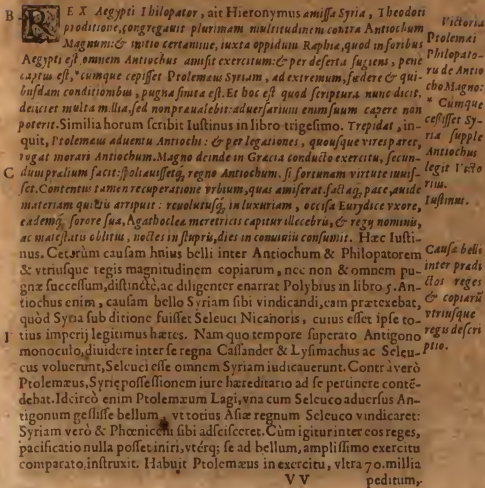 B
REX Aegypti Philopator, ait Hieronymus amissa Syria, Theodoti
proditione, congregauit plurimam multitudinem contra Antiochum
Magnum: & initio certamine, iuxta oppidum Raphia, quod in foribus
Aegypti est, omnem Antiochus amisit exercitum: & per deserta fugiens, penè
captus est, *cumque cepisset Ptolemaeus Syriam, ad extremum, foedere & qui-
busdam conditionibus, pugna finita est. Et hoc est quod scriptura nunc dicit,
deiiciet multa millia, sed non praeualebit: aduersarium enim suum capere non
poterit. Similia horum scribit Iustinus in libro trigesimo. Trepidat, in-
quit, Ptolemaeus aduentu Antiochi: & per legationes, quousque vires paret,
rogat morari Antiochum. Magno deinde in Graecia conducto exercitu, secun-
C
dum pralium facit: spoliauissetq, regno Antiochum, si fortunam virtute iuuis-
set. Contentus tamen recuperatione vrbium, quas amiserat, factaq, pace, auide
materiam quietis arripuit: reuolutusq, in luxuriam, occisa Eurydice vxore,
eademq, sorore sua, Agathocleae meretricis capitur illecebris, & regij nominis,
ac maiestatis oblitus, noctes in stupris, dies in conuiuiis consumit. Haec Iusti-
nus. Ceterùm causam huius belli inter Antiochum & Philopatorem
& vtriusque regis magnitudinem copiarum, nec non & omnem pu-
gnae successum, distinctè, ac diligenter enarrat Polybius in libro 5. An-
tiochus enim, causam bello Syriam sibi vindicandi, eam praetexebat,
quòd Syria sub ditione fuisset Seleuci Nicanoris, cuius esset ipse to-
tius imperij legitimus haeres. Nam quo tempore superato Antigono
monoculo, diuidere inter se regna Cassander & Lysimachus ac Seleu-
cus voluerunt, Seleuci esse omnem Syriam iudicauerunt. Contr averò
Ptolemaeus, Syrię possessionem iure haereditario ad se pertinere contē-
debat. Idcircò enim Ptolemaeum Lagi, vna cum Seleuco aduersus An-
tigonum gessisse bellum, vt totius Asiae regnum Seleuco vindicaret:
Syriam verò & Phoeniceni sibi adscisceret. Cùm igitur inter eos reges,
pacificatio nulla posset iniri, vterq; se ad bellum, amplissimo exercitu
comparato, instruxit. Habuit Ptolemaeus in exercitu, vltra 70. millia
V V
peditum,
Victoria
Ptolemaei
Philopato-
ru de Antio
cho Magno:
* Cumque
cepisset Sy-
ria supple
Antiochus
legit Victo
rius.
Iustinus.
Causa belli
inter praedi
ctos reges
& copiarū
vtriusque
regu descri
ptio.